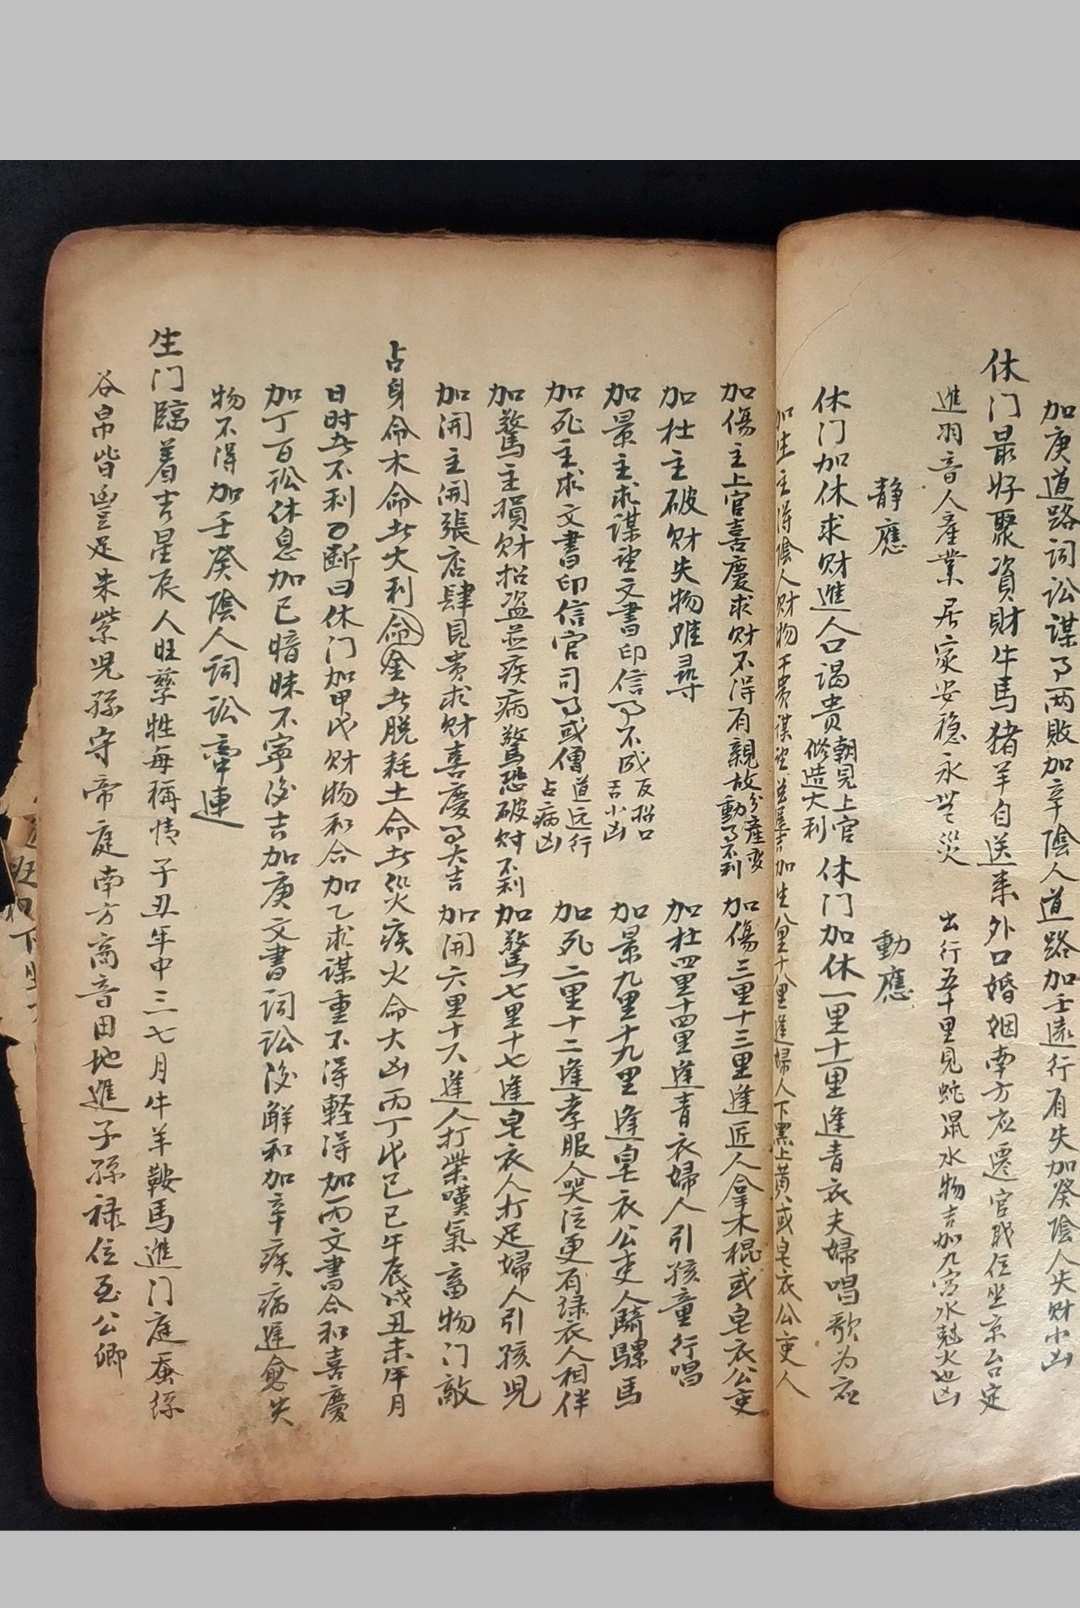 加庚道路詞訟謀事两敗加辛陰人道路加壬遠行有失加癸陰人失财小凶
休门最好聚資財牛馬猪羊自送来外口婚姻南方应遷官职位坐京台定
進羽音人産業居家安稳永無災 出行五十里見蛇鼠水物吉加九宫水尅火也凶
静應 動應
休门加休求财進人口谒贵朝見上官修造大利 休门加休一里十一里逢青衣夫婦唱歌为应
加生主得陰人财物干贵謀望 加生八里十八里逢婦人下黑上黄或皂衣公吏人
加傷主上官喜慶求财不得有親故分産变動事不利 加傷三里十三里逢匠人拿木棍或皂衣公吏
加杜主破财失物难尋 加杜四里十四里逢青衣婦人引孩童行唱
加景主求謀望文書印信事不成反招口舌小凶 加景九里十九里逢皂衣公吏人騎騾馬
加死主求文書印信官司事或僧道远行占病凶 加死二里十二逢孝服人哭泣更有绿衣人相伴
加驚主損财招盗並疾病驚恐破财不利 加驚七里十七逢皂衣人打足婦人引孩児
加開主開張店肆見贵求财喜慶事大吉 加開六里十六逢人打柴嘆氣畜物门敵
占身命木命此大利命金此脱耗土命此災疾火命大凶丙丁戊己巳午辰戌丑未年月
日时此不利 断曰休门加甲戊财物和合加乙求謀重不得軽得加丙文書合和喜慶
加丁百訟休息加已暗昧不寧後吉加庚文書詞訟後解和加辛疾病遲愈失
物不得加壬癸陰人詞訟牵連
生门臨着吉星辰人旺孳牲每稱情子丑年中三七月牛羊鞍馬進门庭蚕絲
谷帛皆豊足朱紫児孫守帝庭南方商音田地進子孫禄位至公卿